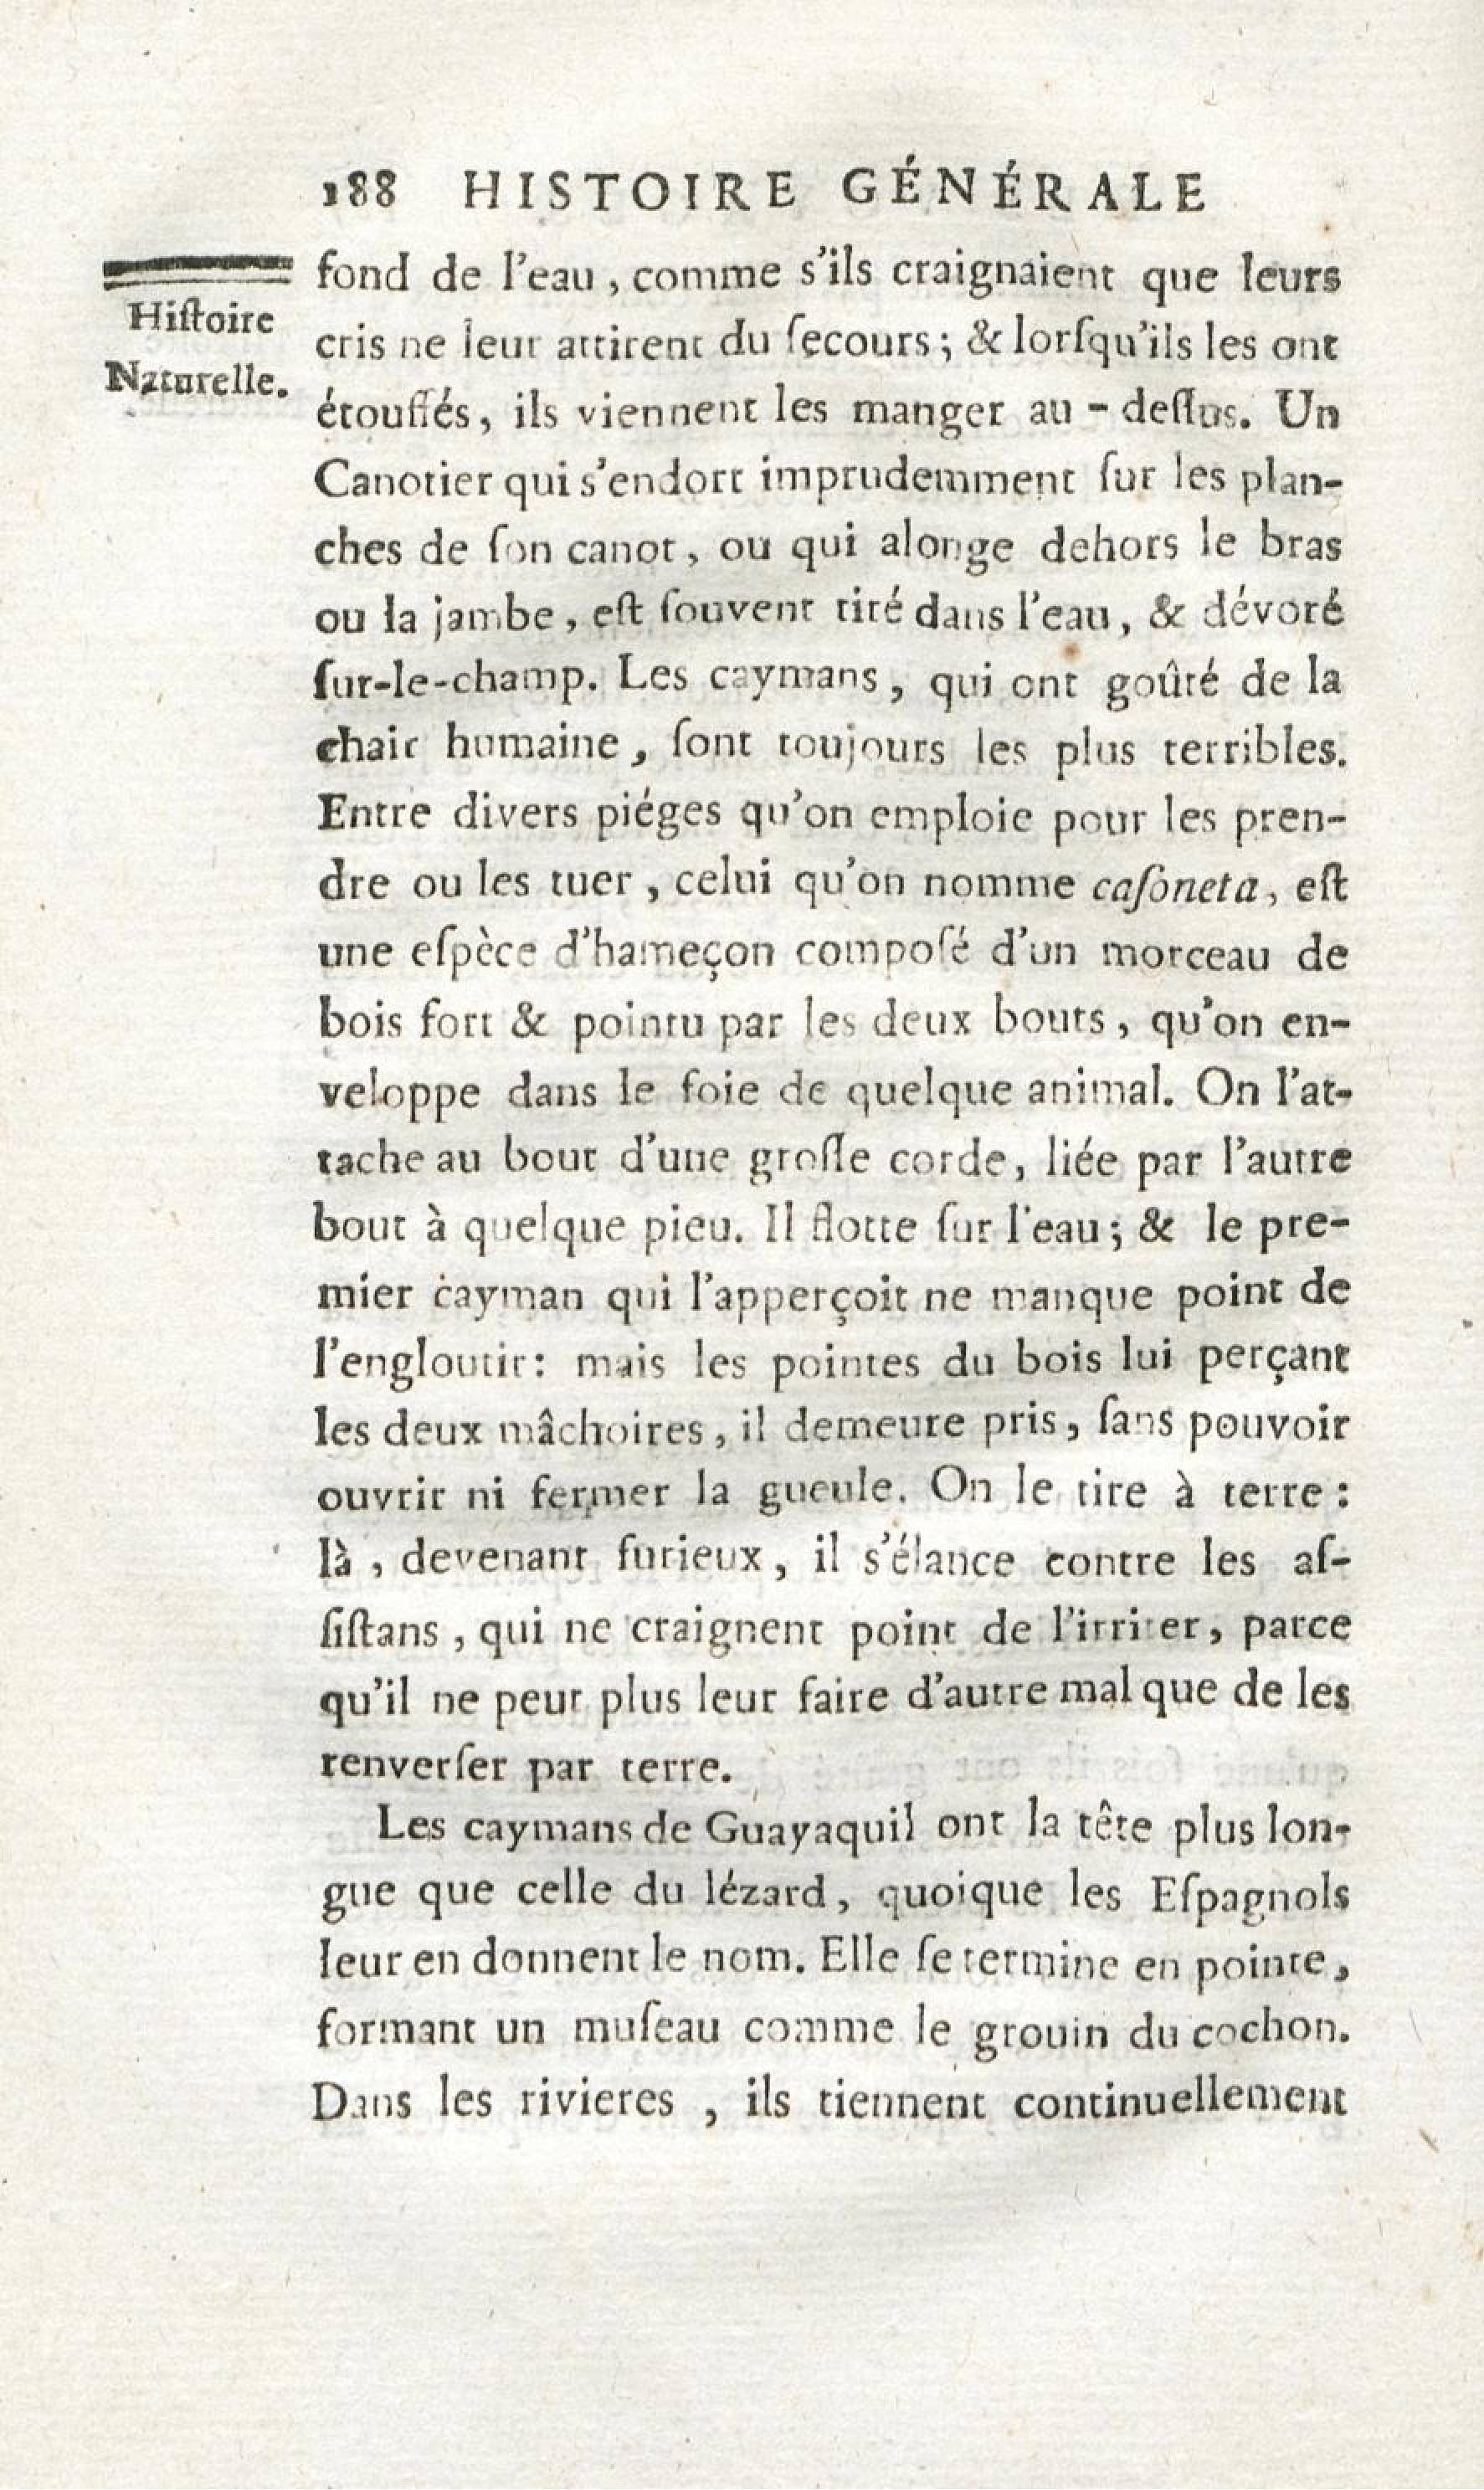 188 HISTOIRE GÉNÉRALE
Hiſtoire
Naturelle.
fond de l'eau, comme s'ils craignaient que leurs
cris ne leur attirent du ſecours; & lorſqu'ils les ont
étouffés, ils viennent les manger au-deſſus. Un
Canotier qui s'endort imprudemment ſur les plan-
ches de ſon canot, ou qui alonge dehors le bras
ou la jambe, eſt ſouvent tiré dans l'eau, & dévoré
ſur-le-champ. Les caymans, qui ont goûté de la
chair humaine, ſont toujours les plus terribles.
Entre divers piéges qu'on emploie pour les pren-
dre ou les tuer, celui qu'on nomme caſoneta, eſt
une eſpèce d'hameçon compoſé d'un morceau de
bois fort & pointu par les deux bouts, qu'on en-
veloppe dans le foie de quelque animal. On l'at-
tache au bout d'une groſſe corde, liée par l'autre
bout à quelque pieu. Il flotte ſur l'eau; & le pre-
mier cayman qui l'apperçoit ne manque point de
l'engloutir: mais les pointes du bois lui perçant
les deux mâchoires, il demeure pris, ſans pouvoir
ouvrir ni fermer la gueule. On le tire à terre:
là, devenant furieux, il s'élance contre les aſ-
ſiſtans, qui ne craignent point de l'irriter, parce
qu'il ne peut plus leur faire d'autre mal que de les
renverſer par terre.
Les caymans de Guayaquil ont la tête plus lon-
gue que celle du lézard, quoique les Eſpagnols
leur en donnent le nom. Elle ſe termine en pointe,
formant un muſeau comme le grouin du cochon.
Dans les rivieres, ils tiennent continuellement